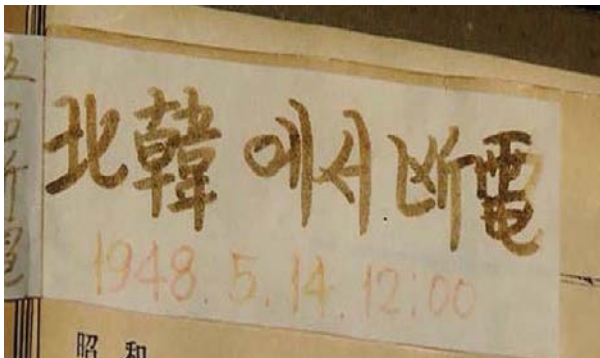 北韓 에서 断電
1948. 5. 14. 12:00
昭和